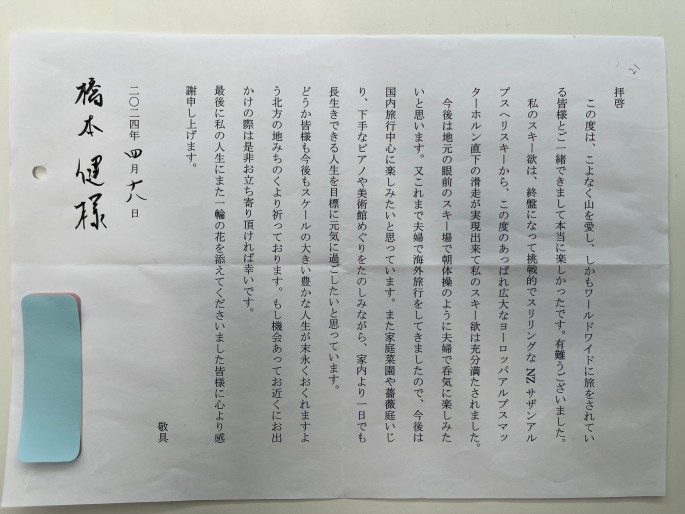 拝啓
この度は、こよなく山を愛し、しかもワールドワイドに旅をされてい
る皆様とご一緒できまして本当に楽しかったです。有難うございました。
私のスキー欲は、終盤になって挑戦的でスリリングなNZサザンアル
プスヘリスキーから、この度のあっぱれ広大なヨーロッパアルプスマッ
ターホルン直下の滑走が実現出来て私のスキー欲は充分満たされました。
今後は地元の眼前のスキー場で朝体操のように夫婦で呑気に楽しみた
いと思います。又これまで夫婦で海外旅行をしてきましたので、今後は
国内旅行中心に楽しみたいと思っています。また家庭菜園や薔薇庭いじ
り、下手なピアノや美術館めぐりをたのしみながら、家内より一日でも
長生きできる人生を目標に元気に過ごしたいと思っています。
どうか皆様も今後もスケールの大きい豊かな人生が末永くおくれますよ
う北方の地みちのくより祈っております。もし機会あってお近くにお出
かけの際は是非お立ち寄り頂ければ幸いです。
最後に私の人生にまた一輪の花を添えてくださいました皆様に心より感
謝申し上げます。
敬具
二〇二四年 四月 十八日
橋本 健様